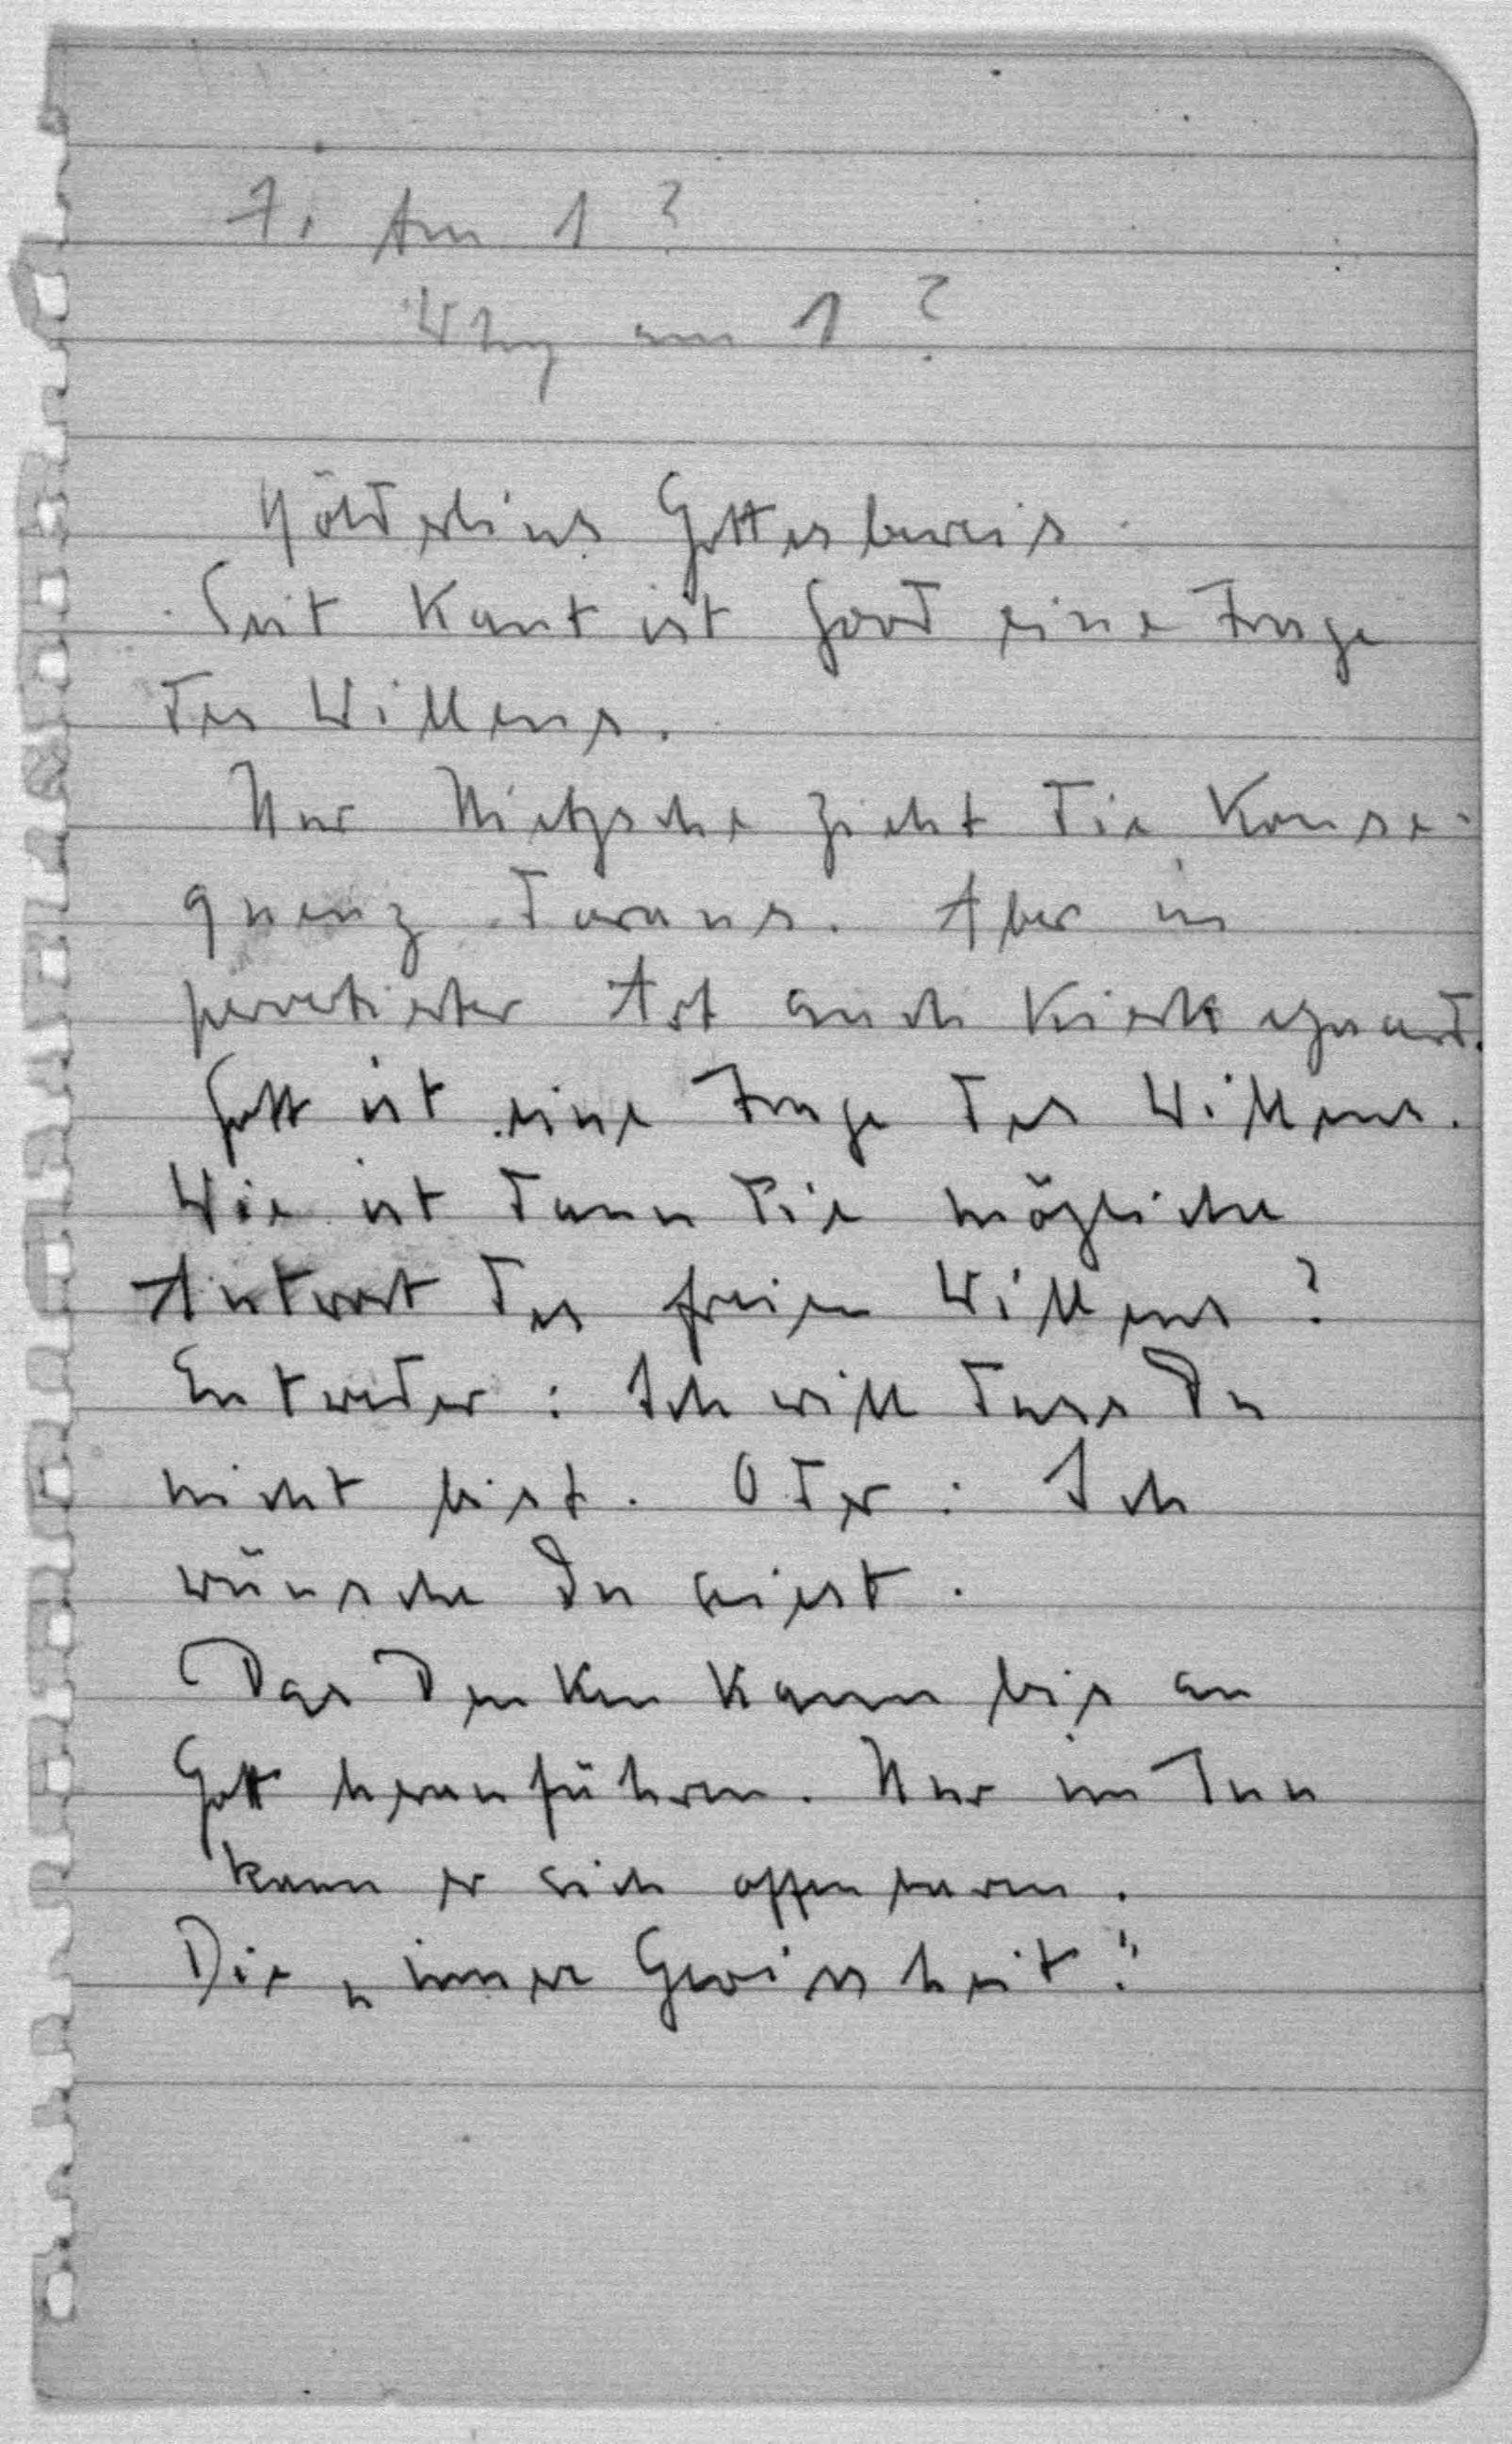 7. Am I ?
Why am I ?
Hölderlins Gottesbeweis.
Seit Kant ist Good eine Frage
des Willens.
Nur Nietzsche zieht die Konse-
quenz daraus. Aber in
pervertierter Art auch Kierkegaard.
Gott ist eine Frage des Willens.
Wie ist dann die mögliche
Antwort des freien Willens ?
Entweder : Ich will dass Du
nicht bist. Oder : Ich
wünsche Du seiest.
Das Denken kann bis an
Gott heranführen. Nur im Tun
kann er sich offenbaren.
Die „innere Gewissheit".